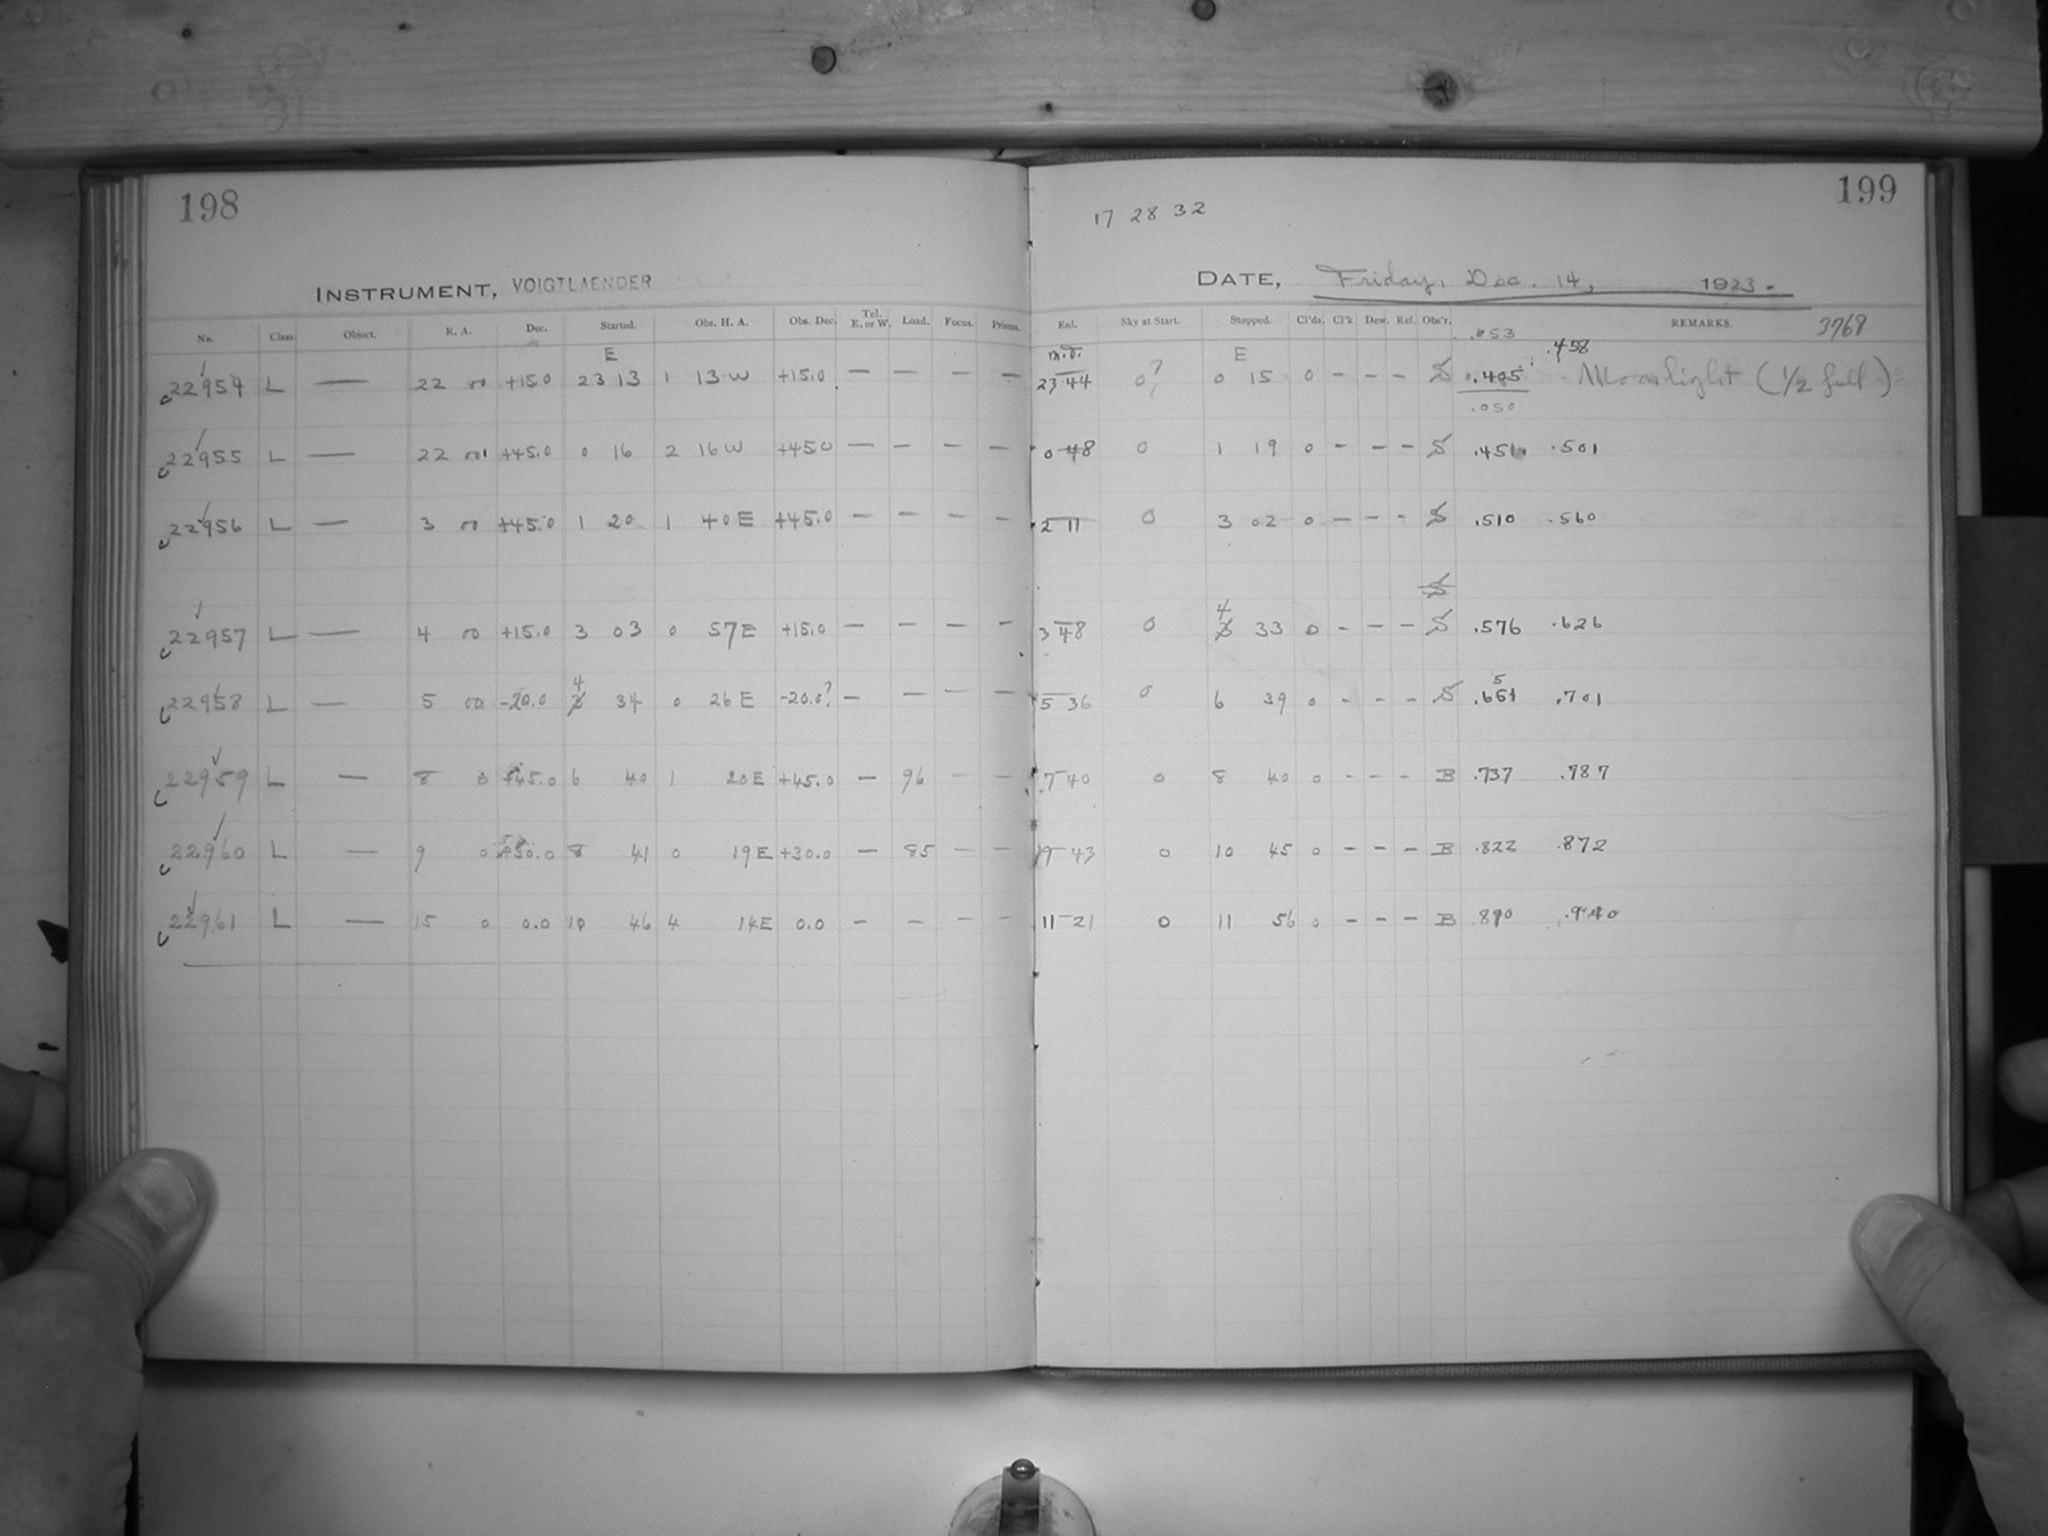 198
199
17 28 32
INSTRUMENT, VOIGTLAENDER
DATE, Friday, Dec. 14, 1923.
No. Class. Object. R. A. Dec. Started. Obs. H. A. Obs. Dec. Tel. E. or W. Load. Focus. Prisms. Enl. Sky at Start. Stopped. Cl'ds. Cl'k Dew. Ref. Obs'r. REMARKS. 3768
E E .053 .458
22954 L — 22 +15.0 23 13 1 13 W +15.0 — — — — 23 44 0? 0 15 0 — — — S .405 Moonlight (1/2 full)
.050
22955 L — 22 +45.0 0 16 2 16 W +45.0 — — — — 0 48 0 1 19 0 — — — S .451 .501
22956 L — 3 +45.0 1 20 1 40 E +45.0 — — — — 2 11 0 3 02 0 — — — S .510 .560
S
4
22957 L — 4 +15.0 3 03 0 57 E +15.0 — — — — 3 48 0 3 33 0 — — — S .576 .626
4 5
22958 L — 5 -20.0 3 34 0 26 E -20.0? — — — — 5 36 0 6 39 0 — — — S .651 .701
22959 L — 8 0 +45.0 6 40 1 20 E +45.0 — 96 — — 7 40 0 8 40 0 — — — B .737 .787
22960 L — 9 0 +30.0 8 41 0 19 E +30.0 — 85 — — 9 43 0 10 45 0 — — — B .822 .872
22961 L — 15 0 0.0 10 46 4 14 E 0.0 — — — — 11 21 0 11 56 0 — — — B .890 .940